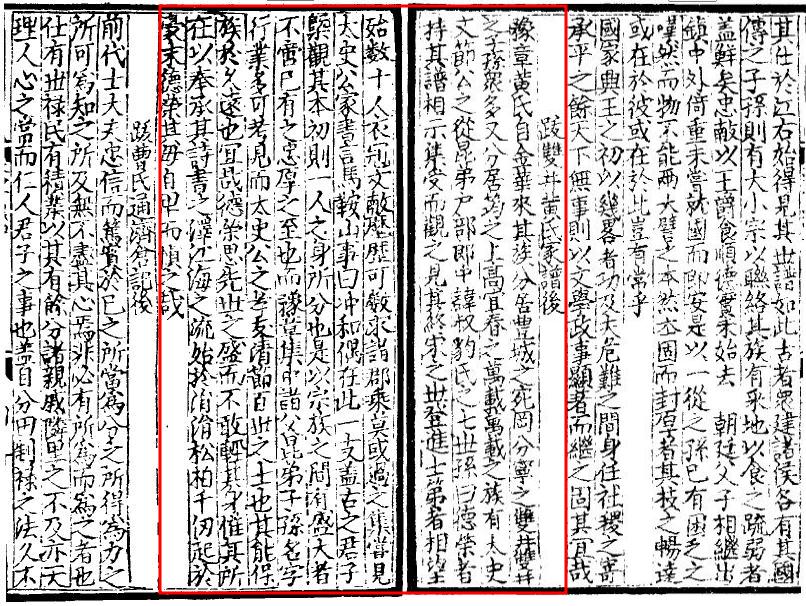 其仕於江右始得見其世譜如此古者眾建諸侯各有其國
傳之子孫則有大小宗以聯絡其族有采地以食之踈弱者
蓋鮮矣忠獻以王爵食順德實未始去　朝廷父子相繼出
鎮中外倚重未嘗就國而即安是以一從之孫已有困乏之
嘆然而物不能兩大譬之本然本固而封厚者其枝之暢達
或在於彼或在於此豈有常乎
國家興王之初以幾畧者功及夫危難之間身任社稷之寄
承平之餘天下無事則以文學政事顯者而繼之固其宜哉
跋雙井黃氏家譜後
豫章黃氏自金華來其族分居豊城之死岡分寧之雙井雙井
之子孫眾多又分居筠之上高宜春之萬載萬載之族有太史
文節公之從昆弟戶部郎中諱叔豹氏之七世孫曰德榮者
持其譜相示集受而觀之見其終宋之世登進士第者相望
始數十人衣冠文獻歷歷可數求諸郡乘莫或過之集嘗見
太史公家書言馬鞍山事曰沖和偶在此一支蓋古之君子
槩觀其本初則一人之身所分也是以宗族之間有盛大者
不啻已有之忠厚之至也而豫章集中諸父昆弟子孫名字
行業多可考見而太史公之孝友清節百世之士也其能保
族於久遠也宜哉德榮思先世之盛而不敢輕其身惟其所
在以奉承其詩書之澤江海之流始於涓涓松柏千仞起於
毫末德榮其毋自卑而慎之哉
跋曹氏通濟倉記後
前代士大夫忠信而篤實於已之所當為分之所得為力之
所可為知之所及無不盡其心焉非必有所為而為之者也
仕有世祿氏有積業以其有餘分諸親戚隣里之不及亦天
理人心之當而仁人君子之事也蓋自分田制祿之法久不